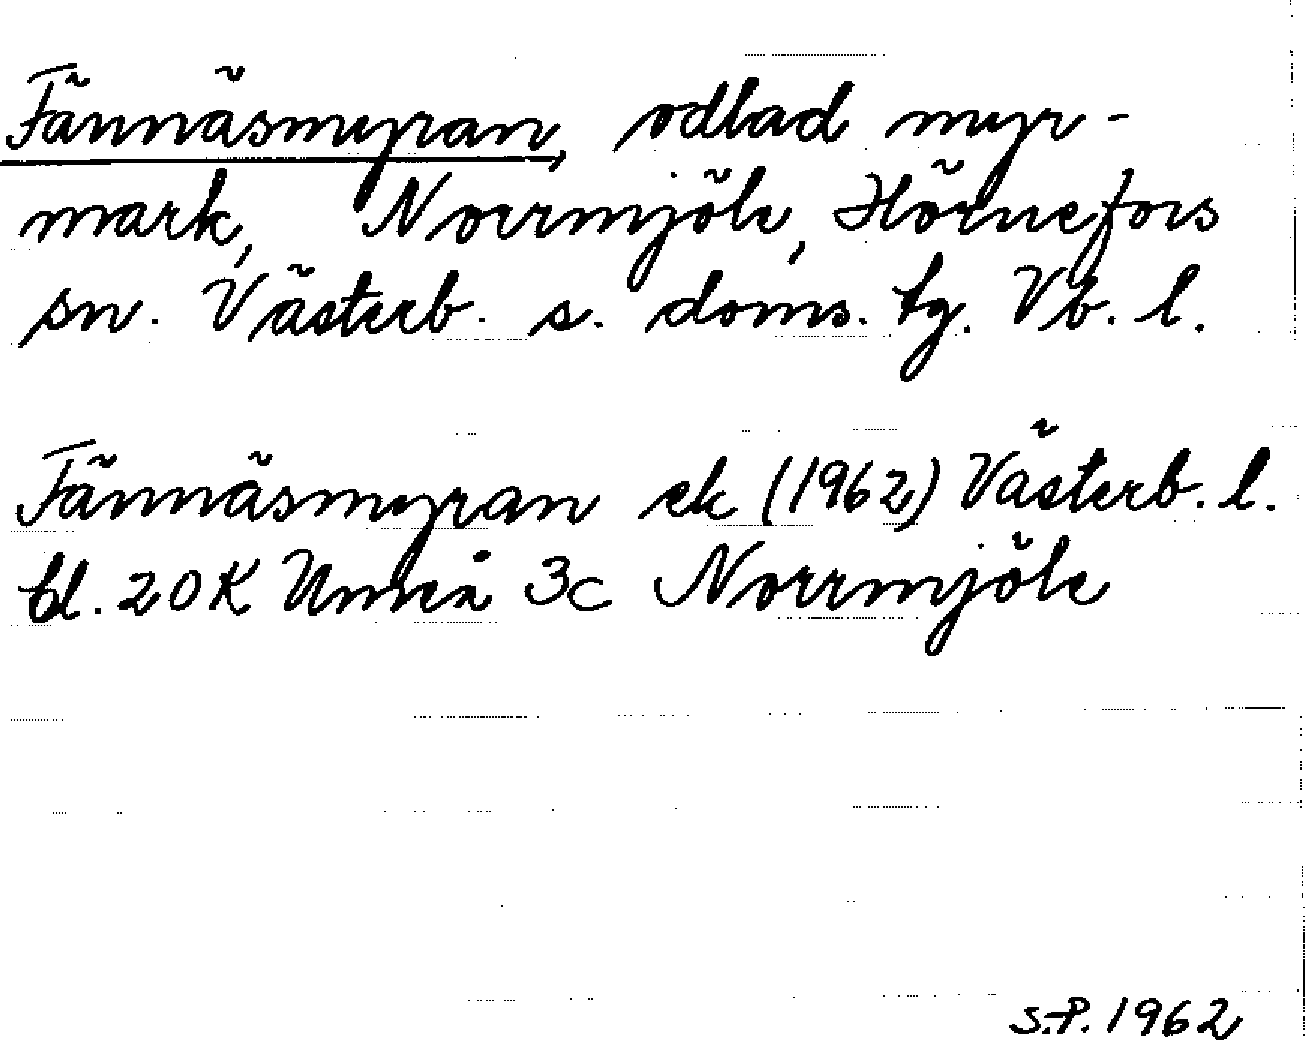 Fännäsmyran, odlad myr-
mark, Norrmjöle, Hörnefors
sn. Västerb. s. doms. tg. Vb. l.
Fännäsmyran ek (1962) Västerb. l.
bl. 20K Umeå 3c Norrmjöle
S.P. 1962